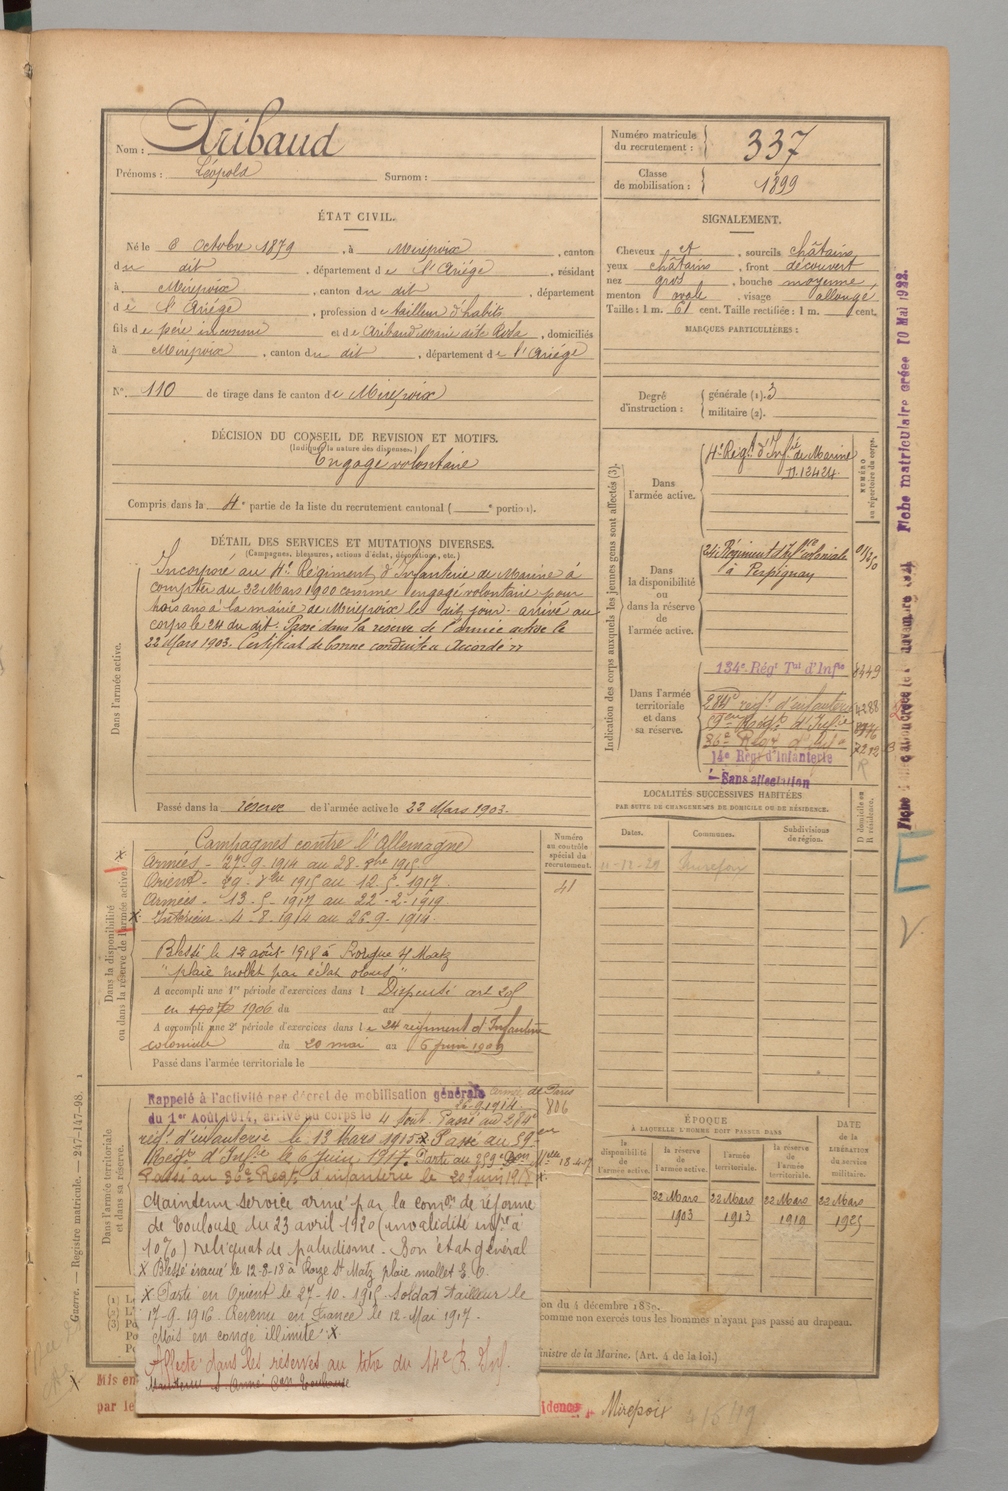 Nom : Aribaud
Prénoms : Léopold Surnom :
Numéro matricule du recrutement : 337
Classe de mobilisation : 1899
ÉTAT CIVIL.
Né le 8 Octobre 1879, à Mirepoix, canton
du dit, département de l'Ariége, résidant
à Mirepoix, canton du dit, département
de l'Ariége, profession de tailleur d'habits
fils de père inconnu et de Aribaud Marie dite Rosa, domiciliés
à Mirepoix, canton du dit, département de l'Ariége
N° 110 de tirage dans le canton de Mirepoix
SIGNALEMENT.
Cheveux et, sourcils châtains
yeux châtains, front découvert
nez gros, bouche moyenne,
menton ovale, visage allongé,
Taille : 1 m. 61 cent. Taille rectifiée : 1 m. cent.
MARQUES PARTICULIÈRES :
Degré d'instruction :
générale (1). 3
militaire (2).
DÉCISION DU CONSEIL DE REVISION ET MOTIFS.
(Indiquer la nature des dispenses.)
Engagé volontaire
Compris dans la 4e partie de la liste du recrutement cantonal ( e portion).
DÉTAIL DES SERVICES ET MUTATIONS DIVERSES.
(Campagnes, blessures, actions d'éclat, décorations, etc.)
Dans l'armée active.
Incorporé au 4e Régiment d'Infanterie de Marine à
compter du 22 Mars 1900 comme engagé volontaire pour
trois ans à la mairie de Mirepoix le dit jour. arrivé au
corps le 24 du dit. Passé dans la réserve de l'armée active le
22 Mars 1903. Certificat de bonne conduite "Accordé"
Passé dans la réserve de l'armée active le 22 Mars 1903.
Indication des corps auxquels les jeunes gens sont affectés (3).
NUMÉRO au répertoire du corps.
Dans l'armée active.
4e Régt d'Infie de Marine
N. 12424
Dans la disponibilité ou dans la réserve de l'armée active.
24 Régiment d'Infrie coloniale
à Perpignan
Dans l'armée territoriale et dans sa réserve.
134e Régt Tal d'Infie 8449
284e régt d'infanterie 4288
59eme Régt d'Infie
36e Regt d'Infie
14e Régt d'Infanterie
Sans affectation
Fiche matriculaire créée 10 Mai 1922.
LOCALITÉS SUCCESSIVES HABITÉES
PAR SUITE DE CHANGEMENTS DE DOMICILE OU DE RÉSIDENCE.
D domicile ou R résidence.
Dates. Communes. Subdivisions de région.
11-12-29
Dans la disponibilité ou dans la réserve de l'armée active
Numéro au contrôle spécial du recrutement.
41
Campagnes contre l'Allemagne
Armées - 27-9-1914 au 28-8bre 1915
Orient - 29-8bre 1915 au 12-5-1917.
Armées - 13-5-1917 au 22-2-1919.
x Intérieur - 4-8-1914 au 26-9-1914.
Blessé le 12 août 1918 à
"plaie mollet par éclat obus"
A accompli une 1re période d'exercices dans l Dispensé art
en 1906 du au
A accompli une 2e période d'exercices dans le 24 régiment d'Infanterie
coloniale du 20 mai au 5 juin 1909
Passé dans l'armée territoriale le
Dans l'armée territoriale et dans sa réserve.
Rappelé à l'activité par décret de mobilisation générale armée de Paris
26-9-1914.
806
du 1er Août 1914, arrivé au corps le 4 août. Passé au 284e
régt d'infanterie le 13 Mars 1915 x Passé au 59eme
Régt d'Infie le 6 Juin 1917. Parti au
Passé au 36e Régt d'infanterie le 20 juin 1918 x.
Maintenu service armé par la comon de réforme
de Toulouse du 23 avril 1920 (invalidité infre à
10%) reliquat de paludisme. Bon état général
x Blessé évacué le 12-8-18 à plaie mollet E. O.
x Parti en Orient le 27-10-1915 Soldat tailleur le
17-9-1916. Revenu en France le 12-Mai 1917.
Mis en congé illimité x
Affecté dans les réserves au titre du 14e R. Inf.
ÉPOQUE
À LAQUELLE L'HOMME DOIT PASSER DANS
la disponibilité de l'armée active.
la réserve de l'armée active.
l'armée territoriale.
la réserve de l'armée territoriale.
DATE de la LIBÉRATION du service militaire.
22 Mars 1903
22 Mars 1913
22 Mars 1919
22 Mars 1925
ion du 4 décembre 1889.
comme non exercés tous les hommes n'ayant pas passé au drapeau.
inistre de la Marine. (Art. 4 de la loi.)
Mis en
par le
idence Mirepoix
Guerre. — Registre matricule. — 247-147-98.